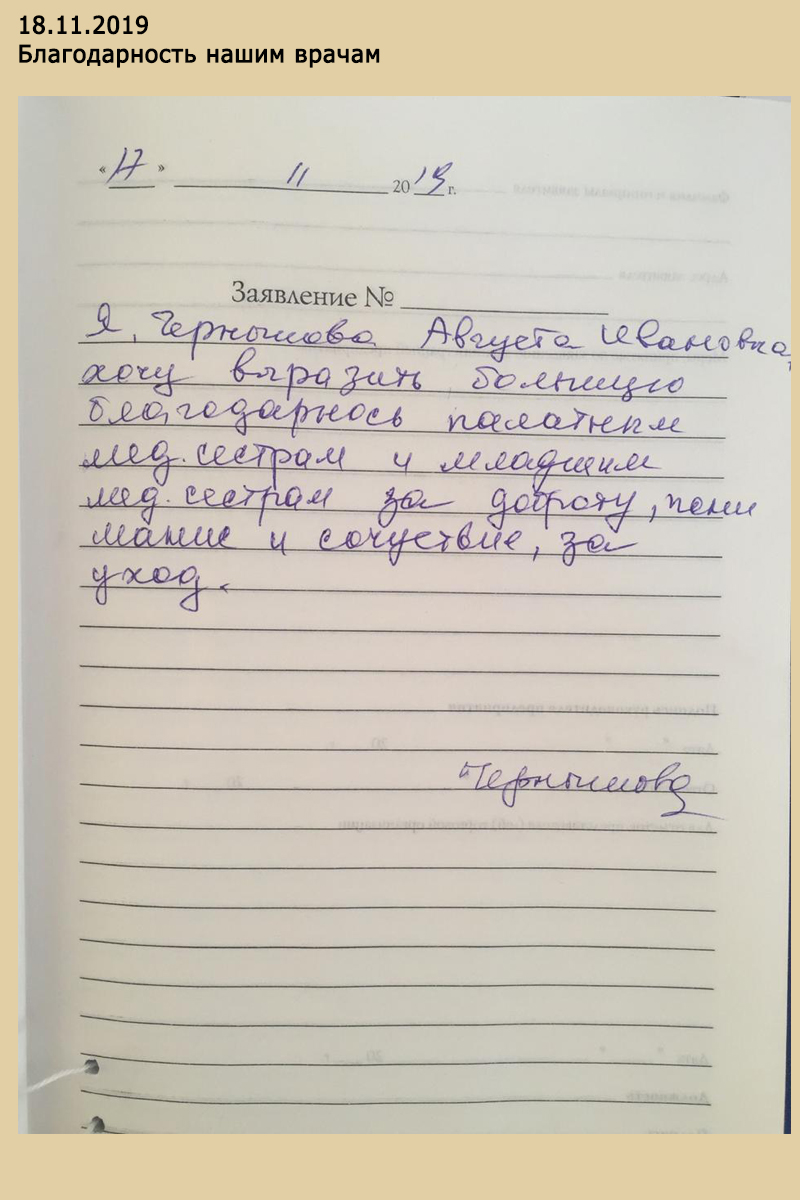 18.11.2019
Благодарность нашим врачам
«17» 11 2019 г.
Заявление №
Я, Чернышова Августа Ивановна,
хочу выразить большую
благодарнось палатным
мед. сестрам и младшим
мед. сестрам за доброту, пони
мание и сочуствие, за
уход.
Чернышова